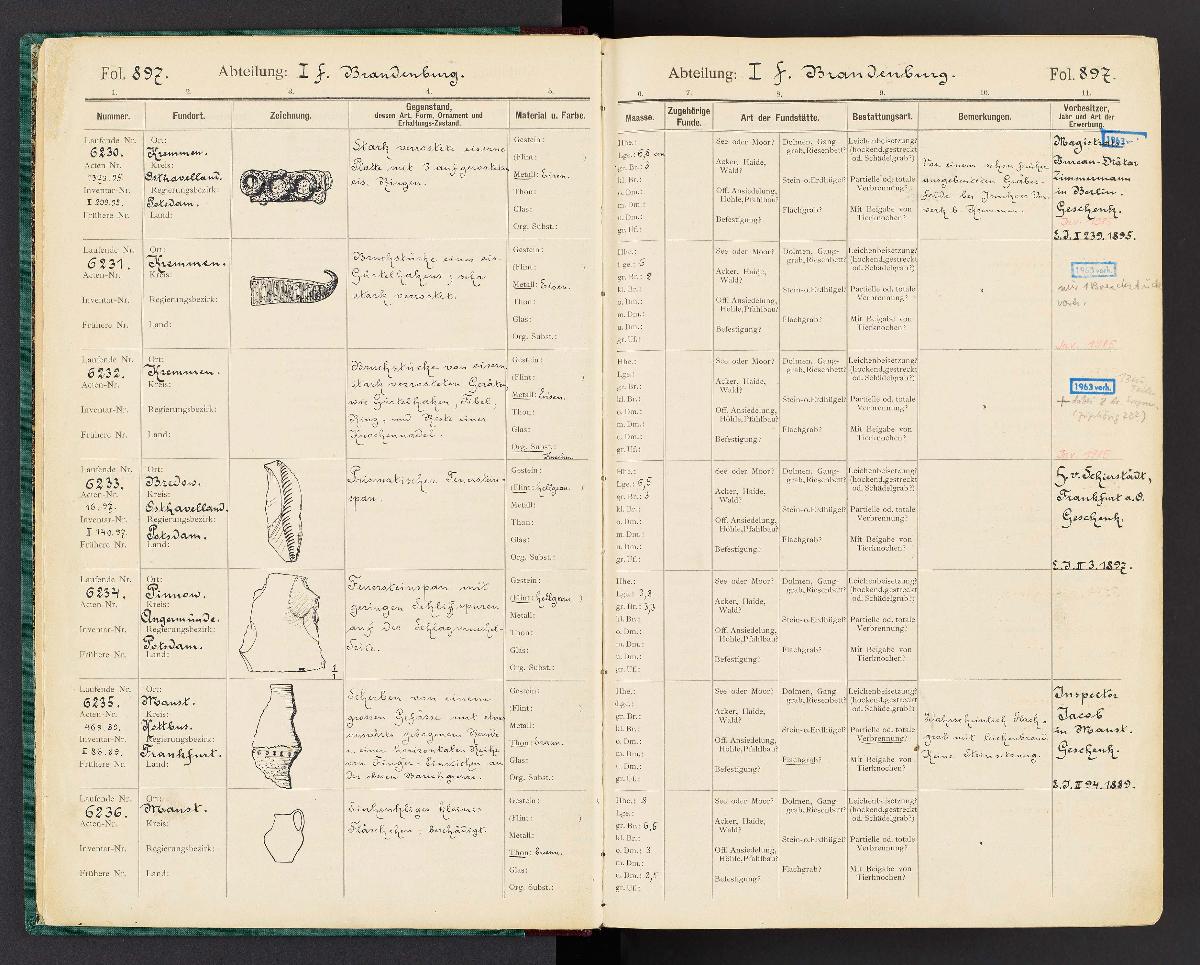 Fol. 897. Abteilung: I f. Brandenburg.
1. 2. 3. 4. 5.
Nummer. Fundort. Zeichnung. Gegenstand, dessen Art, Form, Ornament und Erhaltungs-Zustand. Material u. Farbe.
Laufende Nr. Ort: Gestein:
6230. Kremmen. Stark verrostete eiserne
Acten-Nr. Kreis: (Flint: )
Osthavelland. Platte mit 3 aufgerosteten
Inventar-Nr. Regierungsbezirk: Metall: Eisen.
II 239.95. Potsdam. eis. Ringen.
Frühere Nr. Land: Thon:
Glas:
Org. Subst.:
Laufende Nr. Ort: Gestein:
6231. Kremmen. Bruchstücke eines eis.
Acten-Nr. Kreis: (Flint: )
Gürtelhakens; sehr
Metall: Eisen.
Inventar-Nr. Regierungsbezirk: stark verrostet.
Thon:
Frühere Nr. Land: Glas:
Org. Subst.:
Laufende Nr. Ort: Gestein:
6232. Kremmen. Bruchstücke von eisern.
Acten-Nr. Kreis: (Flint: )
stark verrosteten Geräten,
Metall: Eisen.
wie Gürtelhaken, Fibel,
Inventar-Nr. Regierungsbezirk: Thon:
Ring, und Reste einer
Frühere Nr. Land: Glas:
Knochennadel.
Org. Subst.: Knochen
Laufende Nr. Ort: Gestein:
6233. Bredow. Prismatischer Feuerstein-
Acten-Nr. Kreis: (Flint: hellgrau. )
16.97. Osthavelland. span.
Inventar-Nr. Regierungsbezirk: Metall:
II 140.97. Potsdam. Thon:
Frühere Nr. Land: Glas:
Org. Subst.:
Laufende Nr. Ort: Gestein:
6234. Pinnow. Feuersteinspan mit
Acten-Nr. Kreis: (Flint: hellgrau )
geringen Schliffspuren
Angermünde. Metall:
Inventar-Nr. Regierungsbezirk: auf der Schlagmuschel-
Potsdam. Thon:
Seite.
Frühere Nr. Land: Glas:
1/1 Org. Subst.:
Laufende Nr. Ort: Gestein:
6235. Maust. Scherben von einem
Acten-Nr. Kreis: (Flint: )
469.89. Kottbus. grossen Gefässe mit etwas
Inventar-Nr. Regierungsbezirk: Metall:
II 86.89. Frankfurt. auswärts gebogenem Rande
Thon: braun.
Frühere Nr. Land: u. einer horizontalen Reihe
von Finger-Eindrücken an
Glas:
der oberen Bauchgrenze.
Org. Subst.:
Laufende Nr. Ort: Gestein:
6236. Maust. Einhenkliges kleines
Acten-Nr. Kreis: (Flint: )
Fläschchen; beschädigt.
Metall:
Inventar-Nr. Regierungsbezirk: Thon: braun.
Frühere Nr. Land: Glas:
Org. Subst.:
Abteilung: I f. Brandenburg. Fol. 897.
6. 7. 8. 9. 10. 11.
Maasse. Zugehörige Funde. Art der Fundstätte. Bestattungsart. Bemerkungen. Vorbesitzer, Jahr und Art der Erwerbung.
Hhe.: See oder Moor? Dolmen, Gang- Leichenbeisetzung? Magistrats 1963
Lge.: 6,8 cm grab, Riesenbett? (hockend, gestreckt od. Schädelgrab?) Bureau-Diätar
gr. Br.: 3 Acker, Haide, Wald? Von einem schon früher
kl. Br.: Stein- o. Erdhügel? Partielle od. totale Verbrennung? ausgebeuteten Gräber- Zimmermann
o. Dm.: Off. Ansiedelung, Höhle, Pfahlbau? in Berlin.
m. Dm.: Flachgrab? Mit Beigabe von Tierknochen? Geschenk.
u. Dm.: Befestigung?
gr. Uf.: E.J. II 239. 1895.
Hhe.: See oder Moor? Dolmen, Gang- Leichenbeisetzung?
Lge.: 6 grab, Riesenbett? (hockend, gestreckt od. Schädelgrab?) 1963 vorh.
gr. Br.: 2 Acker, Haide, Wald? nur 1 Bruchstück
kl. Br.: Stein- o. Erdhügel? Partielle od. totale Verbrennung? vorh.
o. Dm.: Off. Ansiedelung, Höhle, Pfahlbau?
m. Dm.: Flachgrab? Mit Beigabe von Tierknochen?
u. Dm.: Befestigung?
gr. Uf.:
Hhe.: See oder Moor? Dolmen, Gang- Leichenbeisetzung?
Lge.: grab, Riesenbett? (hockend, gestreckt od. Schädelgrab?) 1963 vorh.
gr. Br.: Acker, Haide, Wald?
kl. Br.: Stein- o. Erdhügel? Partielle od. totale Verbrennung?
o. Dm.: Off. Ansiedelung, Höhle, Pfahlbau?
m. Dm.: Flachgrab? Mit Beigabe von Tierknochen?
u. Dm.: Befestigung?
gr. Uf.:
Hhe.: See oder Moor? Dolmen, Gang- Leichenbeisetzung? v. Schierstädt,
Lge.: 6,5 grab, Riesenbett? (hockend, gestreckt od. Schädelgrab?)
gr. Br.: 3 Acker, Haide, Wald? Frankfurt a.O.
kl. Br.: Stein- o. Erdhügel? Partielle od. totale Verbrennung? Geschenk.
o. Dm.: Off. Ansiedelung, Höhle, Pfahlbau?
m. Dm.: Flachgrab? Mit Beigabe von Tierknochen?
u. Dm.: Befestigung?
gr. Uf.: E.J. II 3. 1897.
Hhe.: See oder Moor? Dolmen, Gang- Leichenbeisetzung?
Lge.: 3,8 grab, Riesenbett? (hockend, gestreckt od. Schädelgrab?)
gr. Br.: 3,3 Acker, Haide, Wald?
kl. Br.: Stein- o. Erdhügel? Partielle od. totale Verbrennung?
o. Dm.: Off. Ansiedelung, Höhle, Pfahlbau?
m. Dm.: Flachgrab? Mit Beigabe von Tierknochen?
u. Dm.: Befestigung?
gr. Uf.:
Hhe.: See oder Moor? Dolmen, Gang- Leichenbeisetzung? Inspector
Lge.: grab, Riesenbett? (hockend, gestreckt od. Schädelgrab?) Jacob
gr. Br.: Acker, Haide, Wald? Wahrscheinlich Flach-
kl. Br.: Stein- o. Erdhügel? Partielle od. totale Verbrennung? grab mit in Maust.
o. Dm.: Off. Ansiedelung, Höhle, Pfahlbau? Keine Steinsetzung. Geschenk.
m. Dm.: Flachgrab? Mit Beigabe von Tierknochen?
u. Dm.: Befestigung?
gr. Uf.: E.J. II 94. 1889.
Hhe.: 8 See oder Moor? Dolmen, Gang- Leichenbeisetzung?
Lge.: grab, Riesenbett? (hockend, gestreckt od. Schädelgrab?)
gr. Br.: 6,6 Acker, Haide, Wald?
kl. Br.: Stein- o. Erdhügel? Partielle od. totale Verbrennung?
o. Dm.: 3 Off. Ansiedelung, Höhle, Pfahlbau?
m. Dm.: Flachgrab? Mit Beigabe von Tierknochen?
u. Dm.: 2,5 Befestigung?
gr. Uf.: